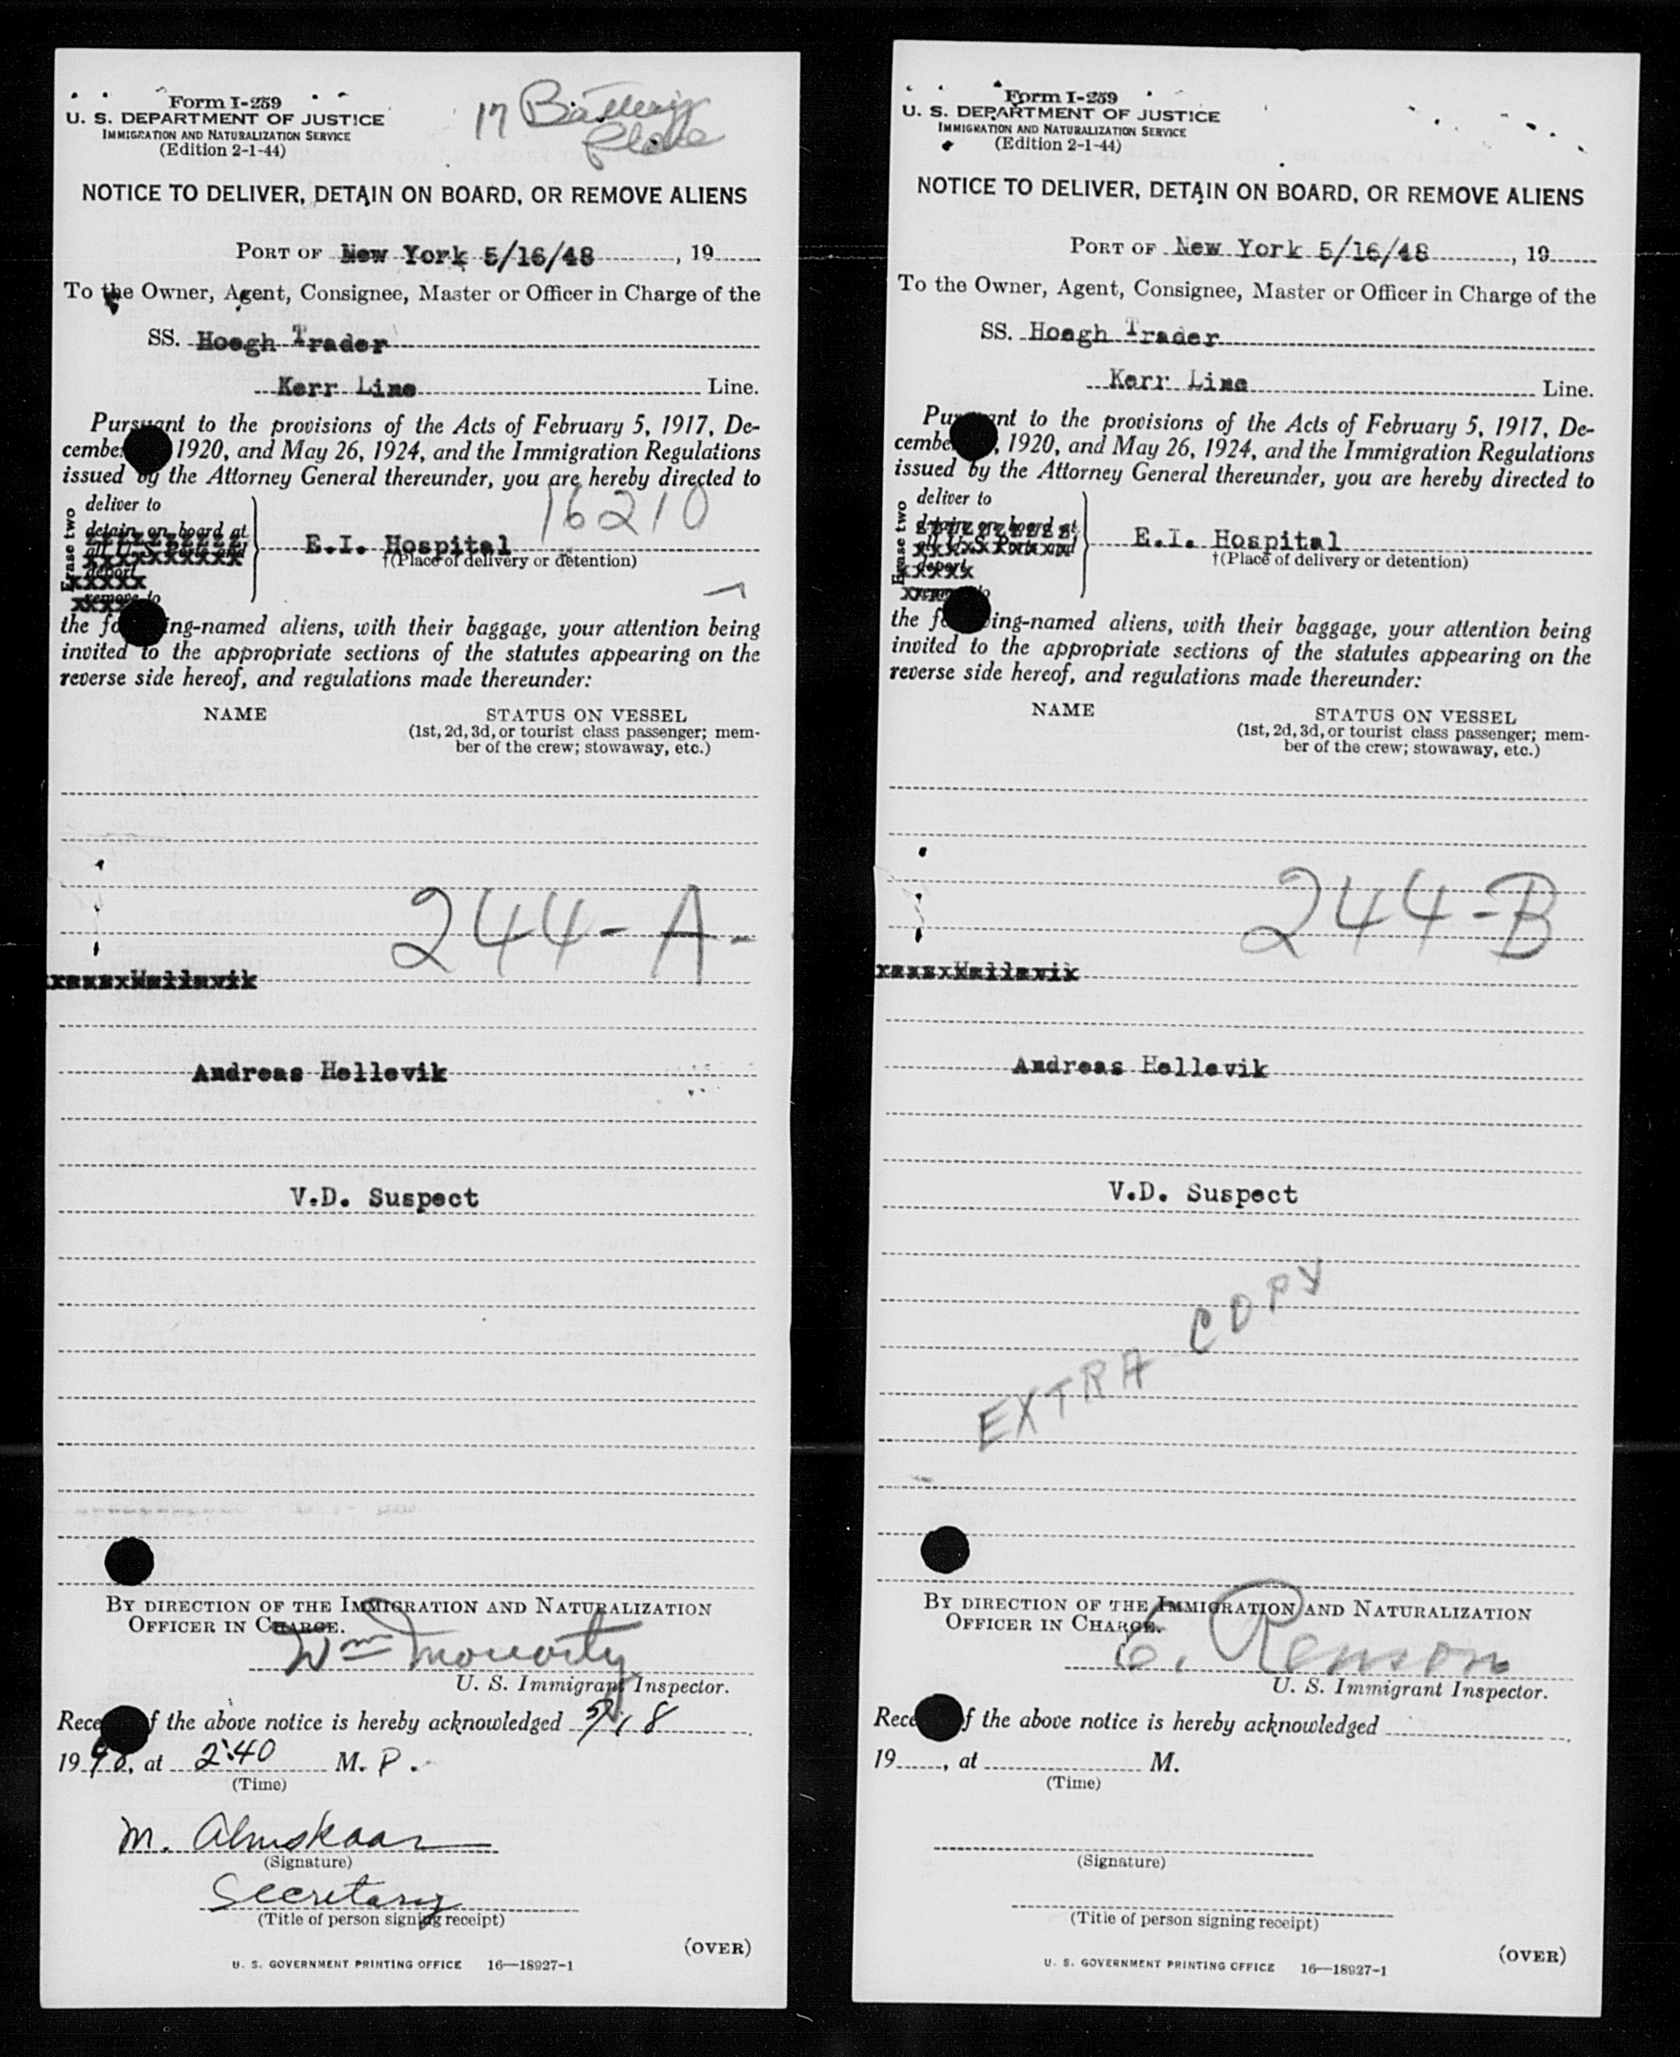 Form I-259
U. S. DEPARTMENT OF JUSTICE
IMMIGRATION AND NATURALIZATION SERVICE
(Edition 2-1-44)
17 Battery
Place
NOTICE TO DELIVER, DETAIN ON BOARD, OR REMOVE ALIENS
PORT OF New York 5/16/48, 19
To the Owner, Agent, Consignee, Master or Officer in Charge of the
SS. Hoegh Trader
Kerr Line Line.
Pursuant to the provisions of the Acts of February 5, 1917, De-
cember 1920, and May 26, 1924, and the Immigration Regulations
issued by the Attorney General thereunder, you are hereby directed to
16210
Erase two
deliver to
detain on board at
all U. S. Ports and
deport
remove to
E.I. Hospital
†(Place of delivery or detention)
the following-named aliens, with their baggage, your attention being
invited to the appropriate sections of the statutes appearing on the
reverse side hereof, and regulations made thereunder:
NAME STATUS ON VESSEL
(1st, 2d, 3d, or tourist class passenger; mem-
ber of the crew; stowaway, etc.)
244-A-
Andreas Hellevik
V.D. Suspect
BY DIRECTION OF THE IMMIGRATION AND NATURALIZATION
OFFICER IN CHARGE.
Wm Moriarty
U. S. Immigrant Inspector.
Receipt of the above notice is hereby acknowledged 5/18
1948, at 2:40 M. P.
(Time)
M. Almskaar
(Signature)
Secretary
(Title of person signing receipt)
(OVER)
U. S. GOVERNMENT PRINTING OFFICE 16—18927-1
Form I-259
U. S. DEPARTMENT OF JUSTICE
IMMIGRATION AND NATURALIZATION SERVICE
(Edition 2-1-44)
NOTICE TO DELIVER, DETAIN ON BOARD, OR REMOVE ALIENS
PORT OF New York 5/16/48, 19
To the Owner, Agent, Consignee, Master or Officer in Charge of the
SS. Hoegh Trader
Kerr Line Line.
Pursuant to the provisions of the Acts of February 5, 1917, De-
cember , 1920, and May 26, 1924, and the Immigration Regulations
issued by the Attorney General thereunder, you are hereby directed to
Erase two
deliver to
detain on board at
all U. S. Ports and
deport
remove to
E.I. Hospital
†(Place of delivery or detention)
the following-named aliens, with their baggage, your attention being
invited to the appropriate sections of the statutes appearing on the
reverse side hereof, and regulations made thereunder:
NAME STATUS ON VESSEL
(1st, 2d, 3d, or tourist class passenger; mem-
ber of the crew; stowaway, etc.)
244-B
Andreas Hellevik
V.D. Suspect
EXTRA COPY
BY DIRECTION OF THE IMMIGRATION AND NATURALIZATION
OFFICER IN CHARGE.
E. Renson
U. S. Immigrant Inspector.
Receipt of the above notice is hereby acknowledged
19, at M.
(Time)
(Signature)
(Title of person signing receipt)
(OVER)
U. S. GOVERNMENT PRINTING OFFICE 16—18927-1